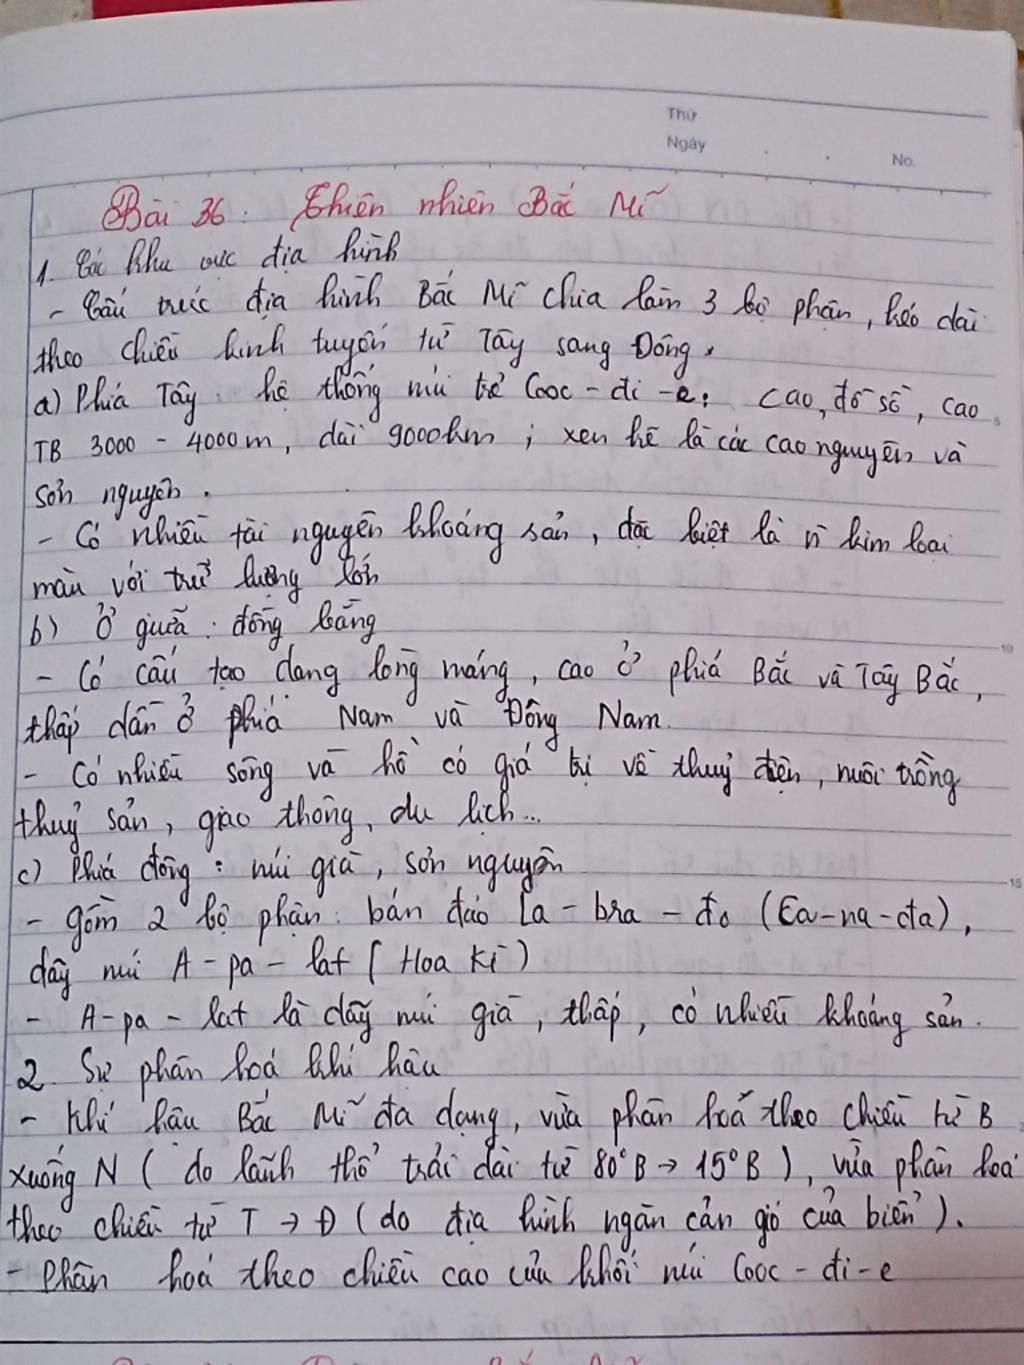 Thứ
Ngày
No.
Bài 36: Thiên nhiên Bắc Mĩ
1. Các khu vực địa hình
- Cấu trúc địa hình Bắc Mĩ chia làm 3 bộ phận, kéo dài
theo chiều kinh tuyến từ Tây sang Đông.
a) Phía Tây: hệ thống núi trẻ Cooc-đi-e: cao, đồ sộ, cao
TB 3000 - 4000m, dài 9000km; xen kẽ là các cao nguyên và
sơn nguyên.
- Có nhiều tài nguyên khoáng sản, đặc biệt là n kim loại
màu với trữ lượng lớn
b) Ở giữa: đồng bằng
- Có cấu tạo dạng lòng máng, cao ở phía Bắc và Tây Bắc,
thấp dần ở phía Nam và Đông Nam.
- Có nhiều sông và hồ có giá trị về thuỷ điện, nuôi trồng
thuỷ sản, giao thông, du lịch...
c) Phía đông: núi già, sơn nguyên
- gồm 2 bộ phận: bán đảo La-bra-đo (Ca-na-đa),
dãy núi A-pa-lat (Hoa Kì)
- A-pa-lat là dãy núi già, thấp, có nhiều khoáng sản.
2. Sự phân hoá khí hậu
- Khí hậu Bắc Mĩ đa dạng, vừa phân hoá theo chiều từ B
xuống N (do lãnh thổ trải dài từ 80°B → 15°B), vừa phân hoá
theo chiều từ T → Đ (do địa hình ngăn cản gió của biển).
- Phân hoá theo chiều cao của khối núi Cooc-đi-e